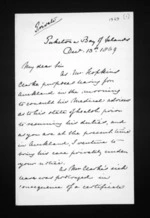 Private
Pukeloa Bay of Islands
Oct. 13th 1869
My dear Sir
As Mr Hopkins
Clarke proposes leaving for
Auckland in the morning
to consult his medical adviser
as to his state of health prior
to resuming his duties, and
as you are at the present time
in Auckland, I venture to
bring his case privately under
your notice.
As Mr Clarke's sick
leave was prolonged in
consequence of a certificate